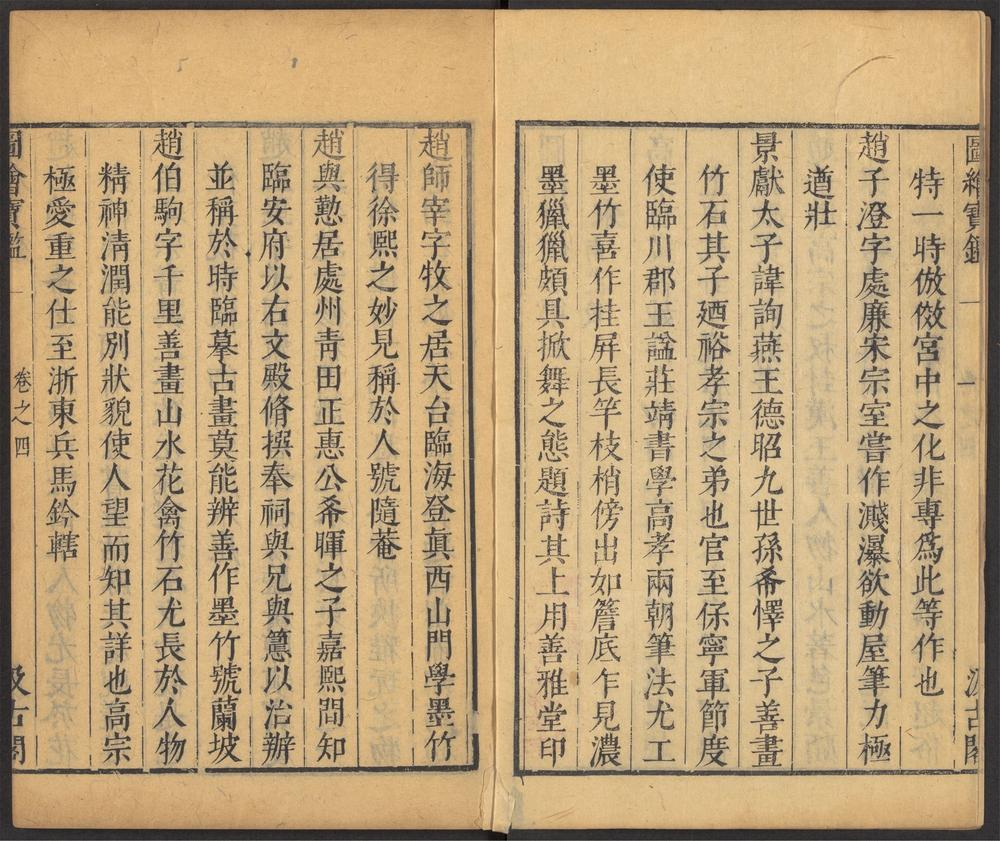 圖繪寶鑑 一 汲古閣
特一時倣傚宮中之化非專爲此等作也
趙子澄字處廉宋宗室嘗作濺瀑欲動屋筆力極
遒壯
景獻太子諱詢燕王德昭九世孫希懌之子善畫
竹石其子廼裕孝宗之弟也官至保寧軍節度
使臨川郡王謚莊靖書學高孝兩朝筆法尤工
墨竹喜作挂屏長竿枝梢傍出如簷底乍見濃
墨獵獵頗具掀舞之態題詩其上用善雅堂印
趙師宰字牧之居天台臨海登眞西山門學墨竹
得徐熙之妙見稱於人號隨菴
趙與懃居處州青田正惠公希暉之子嘉熙間知
臨安府以右文殿脩撰奉祠與兄與𥲤以治辦
並稱於時臨摹古畫莫能辨善作墨竹號蘭坡
趙伯駒字千里善畫山水花禽竹石尤長於人物
精神清潤能別狀貌使人望而知其詳也高宗
極愛重之仕至浙東兵馬鈐轄
圖繪寶鑑 卷之四 汲古閣